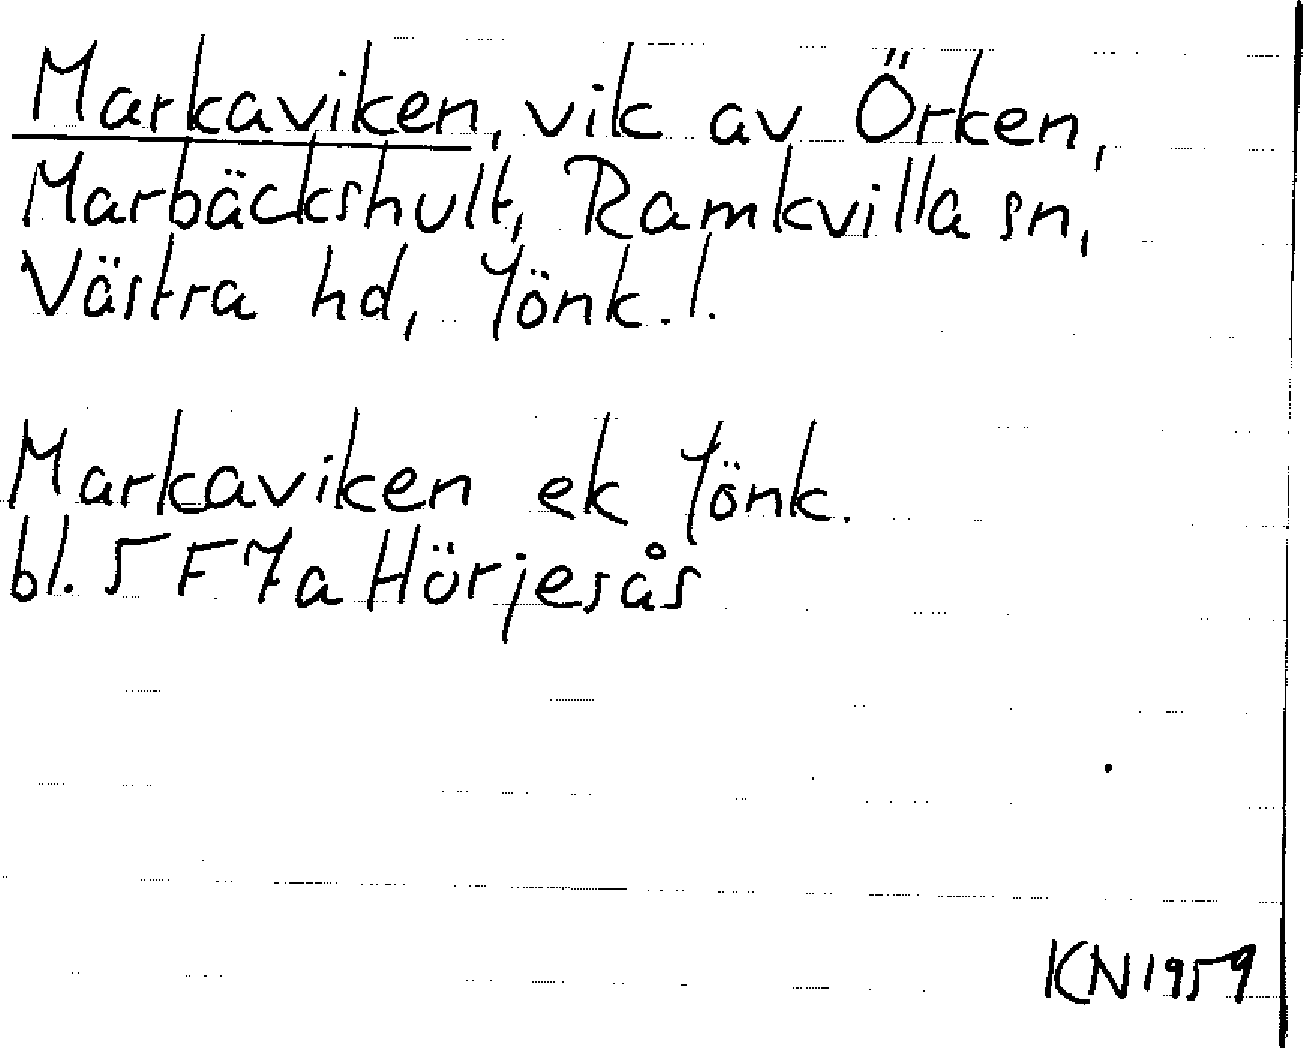 Markaviken, vik av Örken,
Marbäckshult, Ramkvilla sn,
Västra hd, Jönk. l.
Markaviken ek Jönk.
bl. 5 F 7a Hörjesås
KN 1959